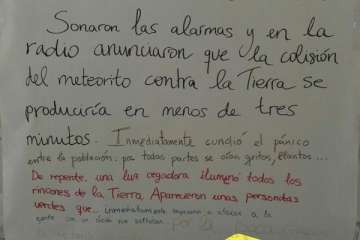 Sonaron las alarmas y en la
radio anunciaron que la colisión
del meteorito contra la Tierra se
produciría en menos de tres
minutos. Inmediatamente cundió el pánico
entre la población: por todas partes se oían gritos, llantos...
De repente, una luz cegadora iluminó todos los
rincones de la Tierra. Aparecieron unas personitas
verdes que... inmediatamente empezaron a atacar a la
gente con un